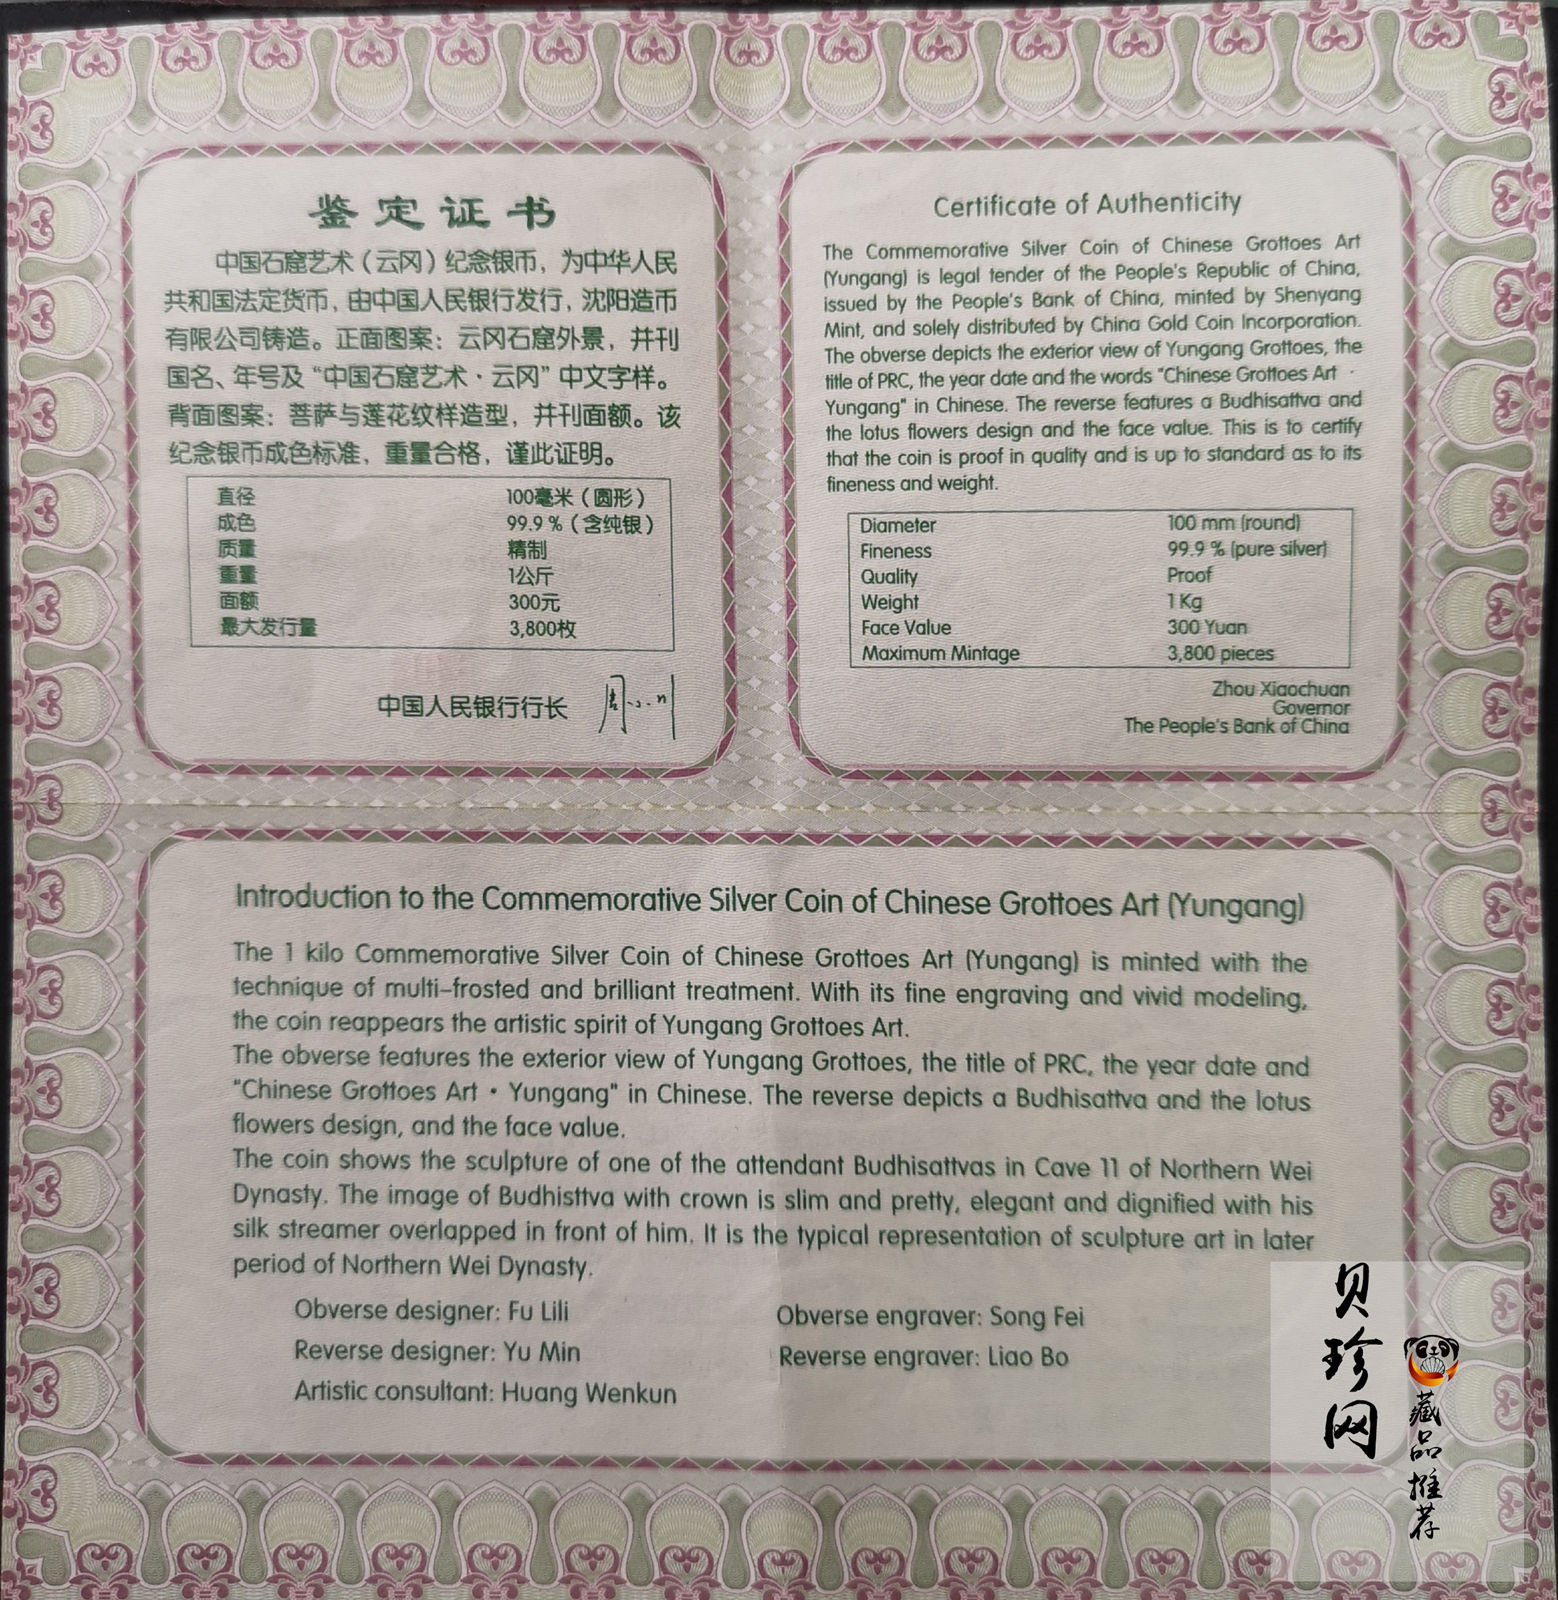 鉴定证书
中国石窟艺术（云冈）纪念银币，为中华人民
共和国法定货币，由中国人民银行发行，沈阳造币
有限公司铸造。正面图案：云冈石窟外景，并刊
国名、年号及“中国石窟艺术·云冈”中文字样。
背面图案：菩萨与莲花纹样造型，并刊面额。该
纪念银币成色标准，重量合格，谨此证明。
直径 100毫米（圆形）
成色 99.9％（含纯银）
质量 精制
重量 1公斤
面额 300元
最大发行量 3,800枚
中国人民银行行长 周小川
Certificate of Authenticity
The Commemorative Silver Coin of Chinese Grottoes Art
(Yungang) is legal tender of the People's Republic of China,
issued by the People's Bank of China, minted by Shenyang
Mint, and solely distributed by China Gold Coin Incorporation.
The obverse depicts the exterior view of Yungang Grottoes, the
title of PRC, the year date and the words "Chinese Grottoes Art ·
Yungang" in Chinese. The reverse features a Budhisattva and
the lotus flowers design and the face value. This is to certify
that the coin is proof in quality and is up to standard as to its
fineness and weight.
Diameter 100 mm (round)
Fineness 99.9 % (pure silver)
Quality Proof
Weight 1 Kg
Face Value 300 Yuan
Maximum Mintage 3,800 pieces
Zhou Xiaochuan
Governor
The People's Bank of China
Introduction to the Commemorative Silver Coin of Chinese Grottoes Art (Yungang)
The 1 kilo Commemorative Silver Coin of Chinese Grottoes Art (Yungang) is minted with the
technique of multi-frosted and brilliant treatment. With its fine engraving and vivid modeling,
the coin reappears the artistic spirit of Yungang Grottoes Art.
The obverse features the exterior view of Yungang Grottoes, the title of PRC, the year date and
"Chinese Grottoes Art · Yungang" in Chinese. The reverse depicts a Budhisattva and the lotus
flowers design, and the face value.
The coin shows the sculpture of one of the attendant Budhisattvas in Cave 11 of Northern Wei
Dynasty. The image of Budhisttva with crown is slim and pretty, elegant and dignified with his
silk streamer overlapped in front of him. It is the typical representation of sculpture art in later
period of Northern Wei Dynasty.
Obverse designer: Fu Lili
Obverse engraver: Song Fei
Reverse designer: Yu Min
Reverse engraver: Liao Bo
Artistic consultant: Huang Wenkun
贝珍网
藏品推荐